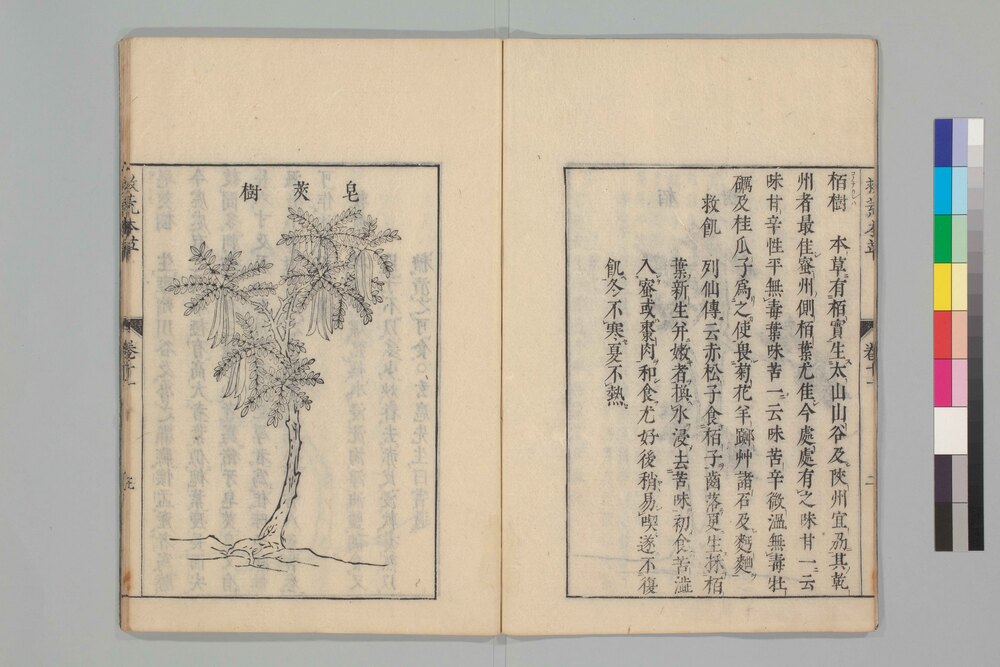 栢樹　本草有栢實生太山山谷及陜州宜州其乾
州者最佳蜜州側栢葉尤佳今處處有之味甘一云
味甘辛性平無毒葉味苦一云味苦辛微溫無毒牡
蠣及桂瓜子爲之使畏菊花羊蹄艸諸石及麪麴
救飢　列仙傳云赤松子食栢子齒落更生採栢
葉新生幷嫩者換水浸去苦味初食苦澁
入蜜或棗肉和食尤好後稍易喫遂不復
飢冬不寒夏不熱
卷十一
二
皂莢樹
救荒本草
卷十一